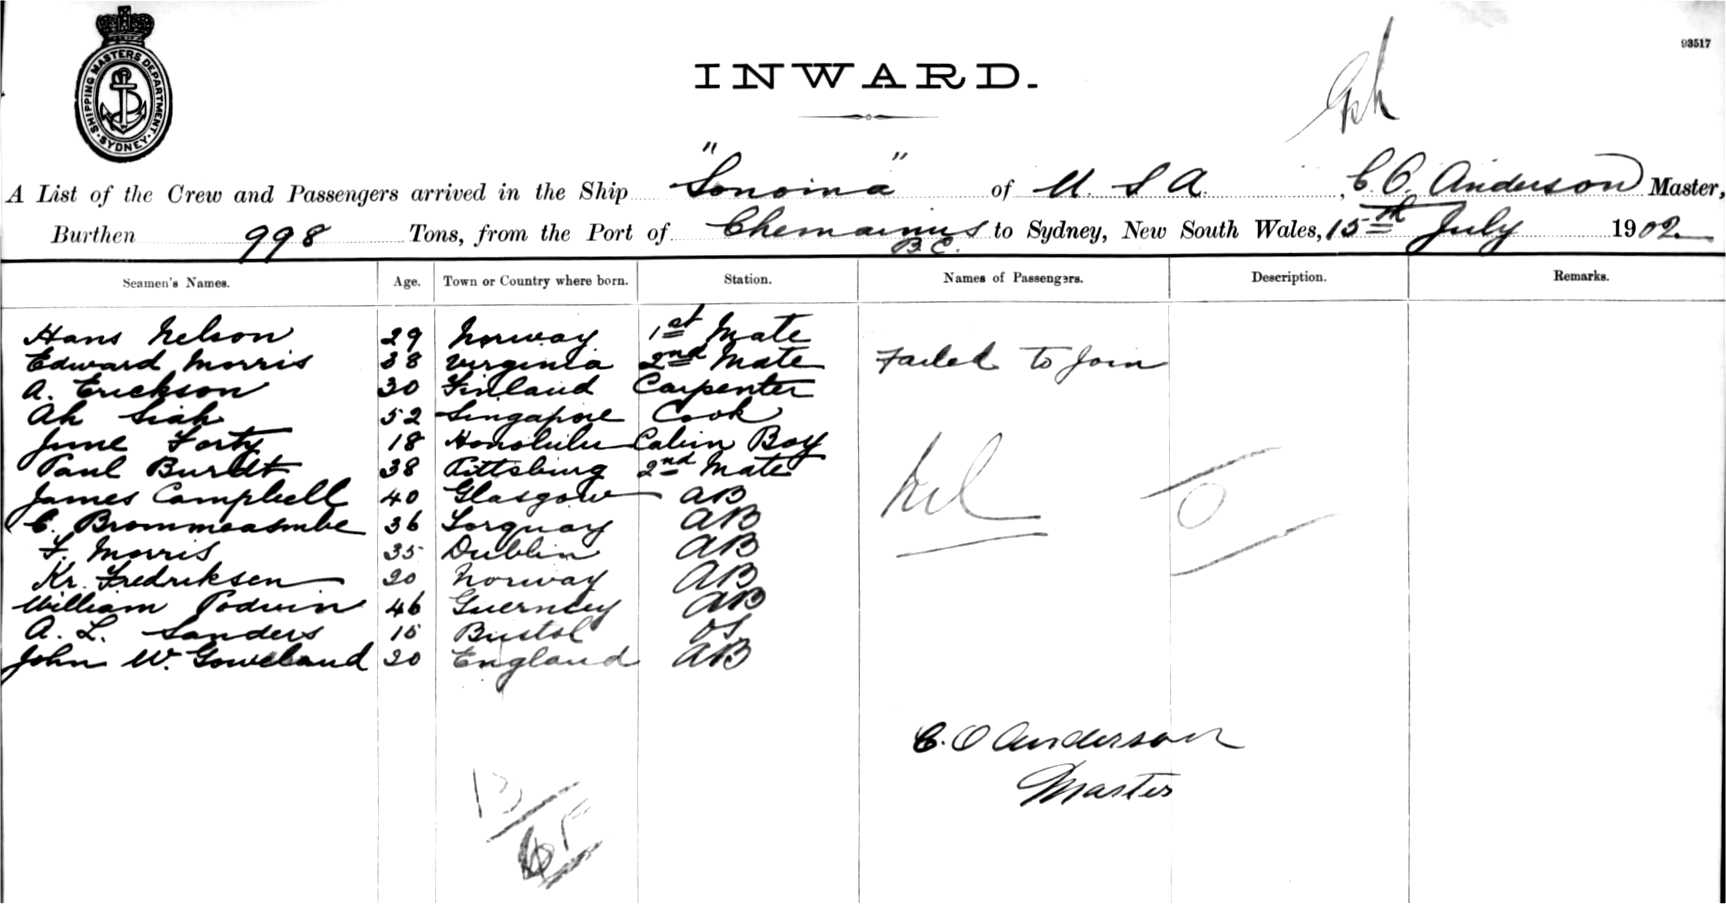 93517
SHIPPING MASTERS DEPARTMENT. SYDNEY
INWARD.
A List of the Crew and Passengers arrived in the Ship "Sonoma" of U. S A. , C. O. Anderson Master,
Burthen 998 Tons, from the Port of Chemainus B.C. to Sydney, New South Wales, 15th July 1902
Seamen's Names. Age. Town or Country where born. Station. Names of Passengers. Description. Remarks.
Hans Nelson 29 Norway 1st Mate
Edward Morris 38 Virginia 2nd Mate Failed to Join
A. Erickson 30 Finland Carpenter
Ah Siah 52 Singapore Cook
June Forty 18 Honolulu Cabin Boy
Paul 38 Pittsburg 2nd Mate
James Campbell 40 Glasgow AB
C. 36 Torquay AB
F. Morris 35 Dublin AB
Kr. Fredriksen 20 Norway AB
William Podvin 46 Guernsey AB
A. L. Sanders 15 Bristol OS
John W. 20 England AB
Nil
C. O Anderson
Master
13